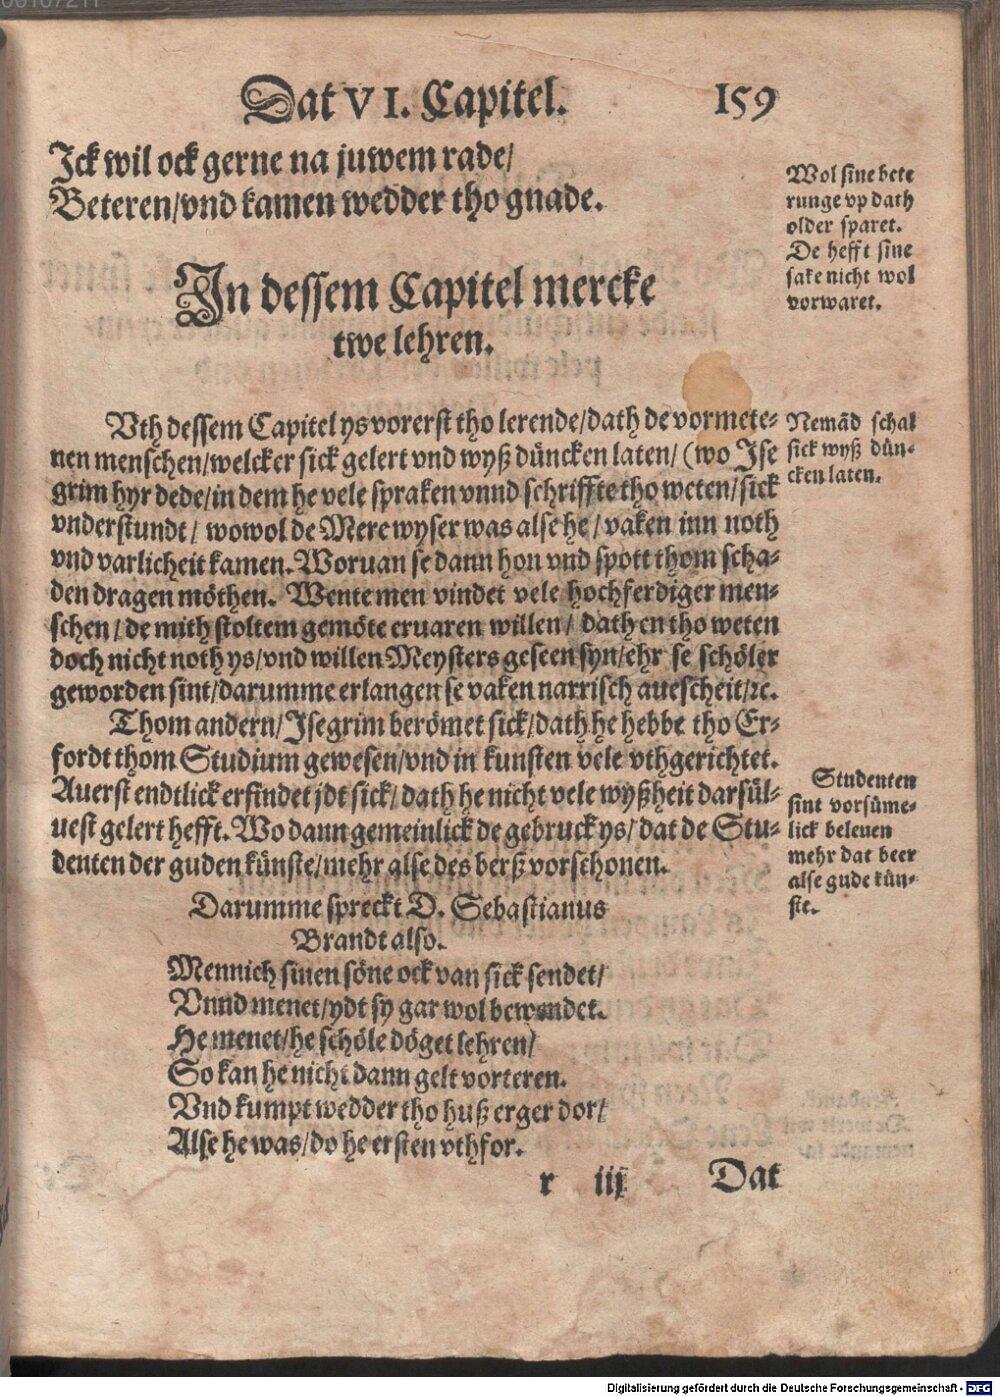 Dat VI. Capitel. 159
Ick wil ock gerne na juwem rade/
Beteren/vnd kamen wedder tho gnade.
Wol sine bete
runge vp dath
older sparet.
De hefft sine
sake nicht wol
vorwaret.
In dessem Capitel mercke
twe lehren.
Vth dessem Capitel ys vorerst tho lerende/dath de vormete-
nen menschen/welcker sick gelert vnd wyß düncken laten/ (wo Ise
grim hyr dede/in dem he vele spraken vnnd schriffte tho weten/sick
vnderstundt/ wowol de Mere wyser was alse he/ vaken inn noth
vnd varlicheit kamen. Woruan se dann hon vnd spott thom scha-
den dragen möthen. Wente men vindet vele hochferdiger men-
schen/de mith stoltem gemöte eruaren willen/ dath en tho weten
doch nicht noth ys/vnd willen Meysters geseen syn/ehr se schöler
geworden sint/darumme erlangen se vaken narrisch auescheit/ꝛc.
Nemãd schal
sick wyß dün-
cken laten.
Thom andern/Isegrim berömet sick/dath he hebbe tho Er-
fordt thom Studium gewesen/vnd in kunsten vele vthgerichtet.
Auerst endtlick erfindet jdt sick/dath he nicht vele wyßheit darsül-
uest gelert hefft. Wo dann gemeinlick de gebruck ys/dat de Stu-
denten der guden künste/mehr alse des berß vorschonen.
Studenten
sint vorsüme-
lick beleuen
mehr dat beer
alse gude kün-
ste.
Darumme spreckt D. Sebastianus
Brandt also.
Mennich sinen söne ock van sick sendet/
Vnnd menet/ydt sy gar wol bewendet.
He menet/he schöle döget lehren/
So kan he nicht dann gelt vorteren.
Vnd kumpt wedder tho huß erger dor/
Alse he was/do he ersten vthfor.
r iij Dat
Digitalisierung gefördert durch die Deutsche Forschungsgemeinschaft - DFG